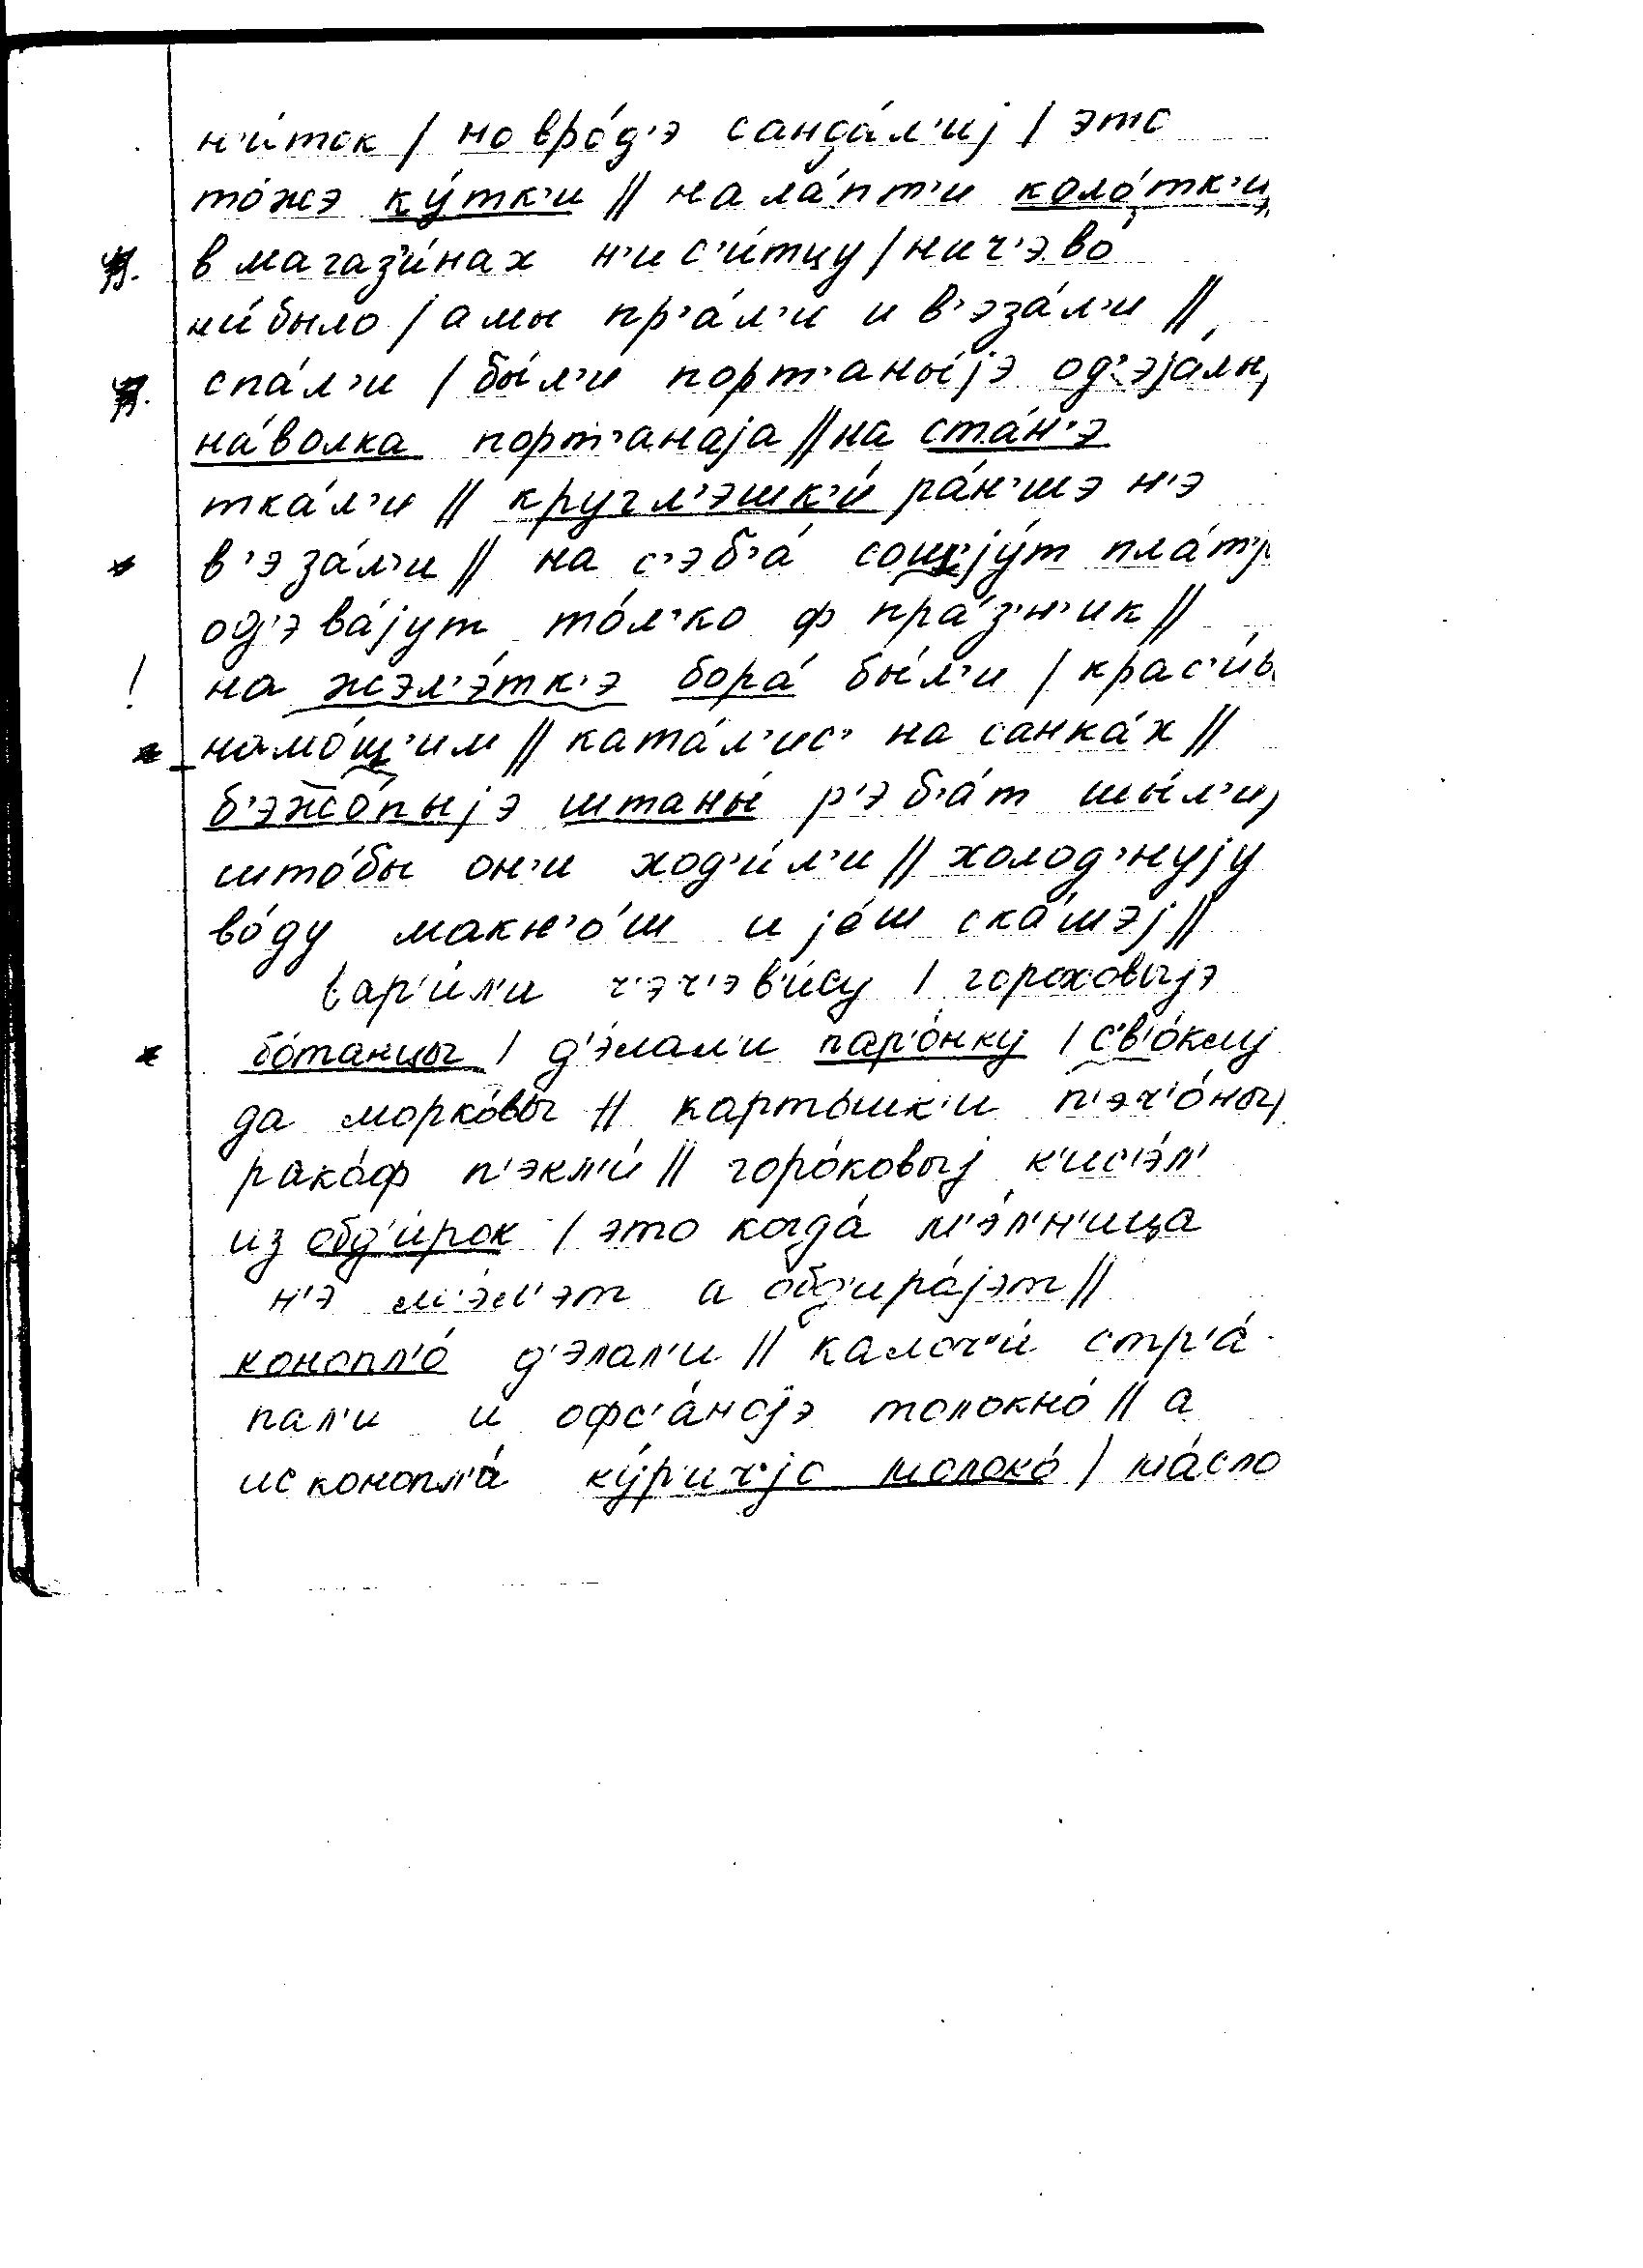 н'и́ток / но вро́д'э санда́л'иj / это
то́жэ ку́тк'и // на ла́пт'и коло́тк'и
в магаз'и́нах н'и с'и́тцу / нич'эво́
ни́было / а мы пр'а́л'и и в'эза́л'и //
спа́л'и / бы́л'и порт'аны́jэ од'эjа́лы,
на́волка порт'анаjа // на ста́н'э
тка́л'и // кругл'эшк'и́ ра́н'шэ н'э
в'эза́л'и // на с'эб'а́ сошjу́т
од'эва́jут то́л'ко ф пра́з'н'ик //
на жэл'э́тк'э бора́ бы́л'и / крас'и́в
намо́щ'им // ката́л'ис' на санка́х //
б'эжо́пыjэ штаны́ р'эб'а́т шы́л'и,
што́бы он'и ход'и́л'и // холод'нуjу
во́ду макн'о́ш и jе́ш ска́шэj //
вар'и́л'и ч'эч'эв'и́су / гороховыjэ
бо́танцы / д'э́лал'и пар'о́нку / с'в'о́клу
да морко́вы // карто́шк'и п'эч'о́ны,
рако́ф п'экл'и́ // горо́ковыj к'ис'э́л'
из обд'и́рок / это когда́ м'э́л'н'ица
н'э м'э́л'эт а обд'ира́jэт //
конопл'о́ д'элал'и // калач'и́ стр'а́-
пал'и и офс'а́ноjэ толокно́ // а
ис конопл'а́ ку́р'ич'jо молоко́ / ма́сло